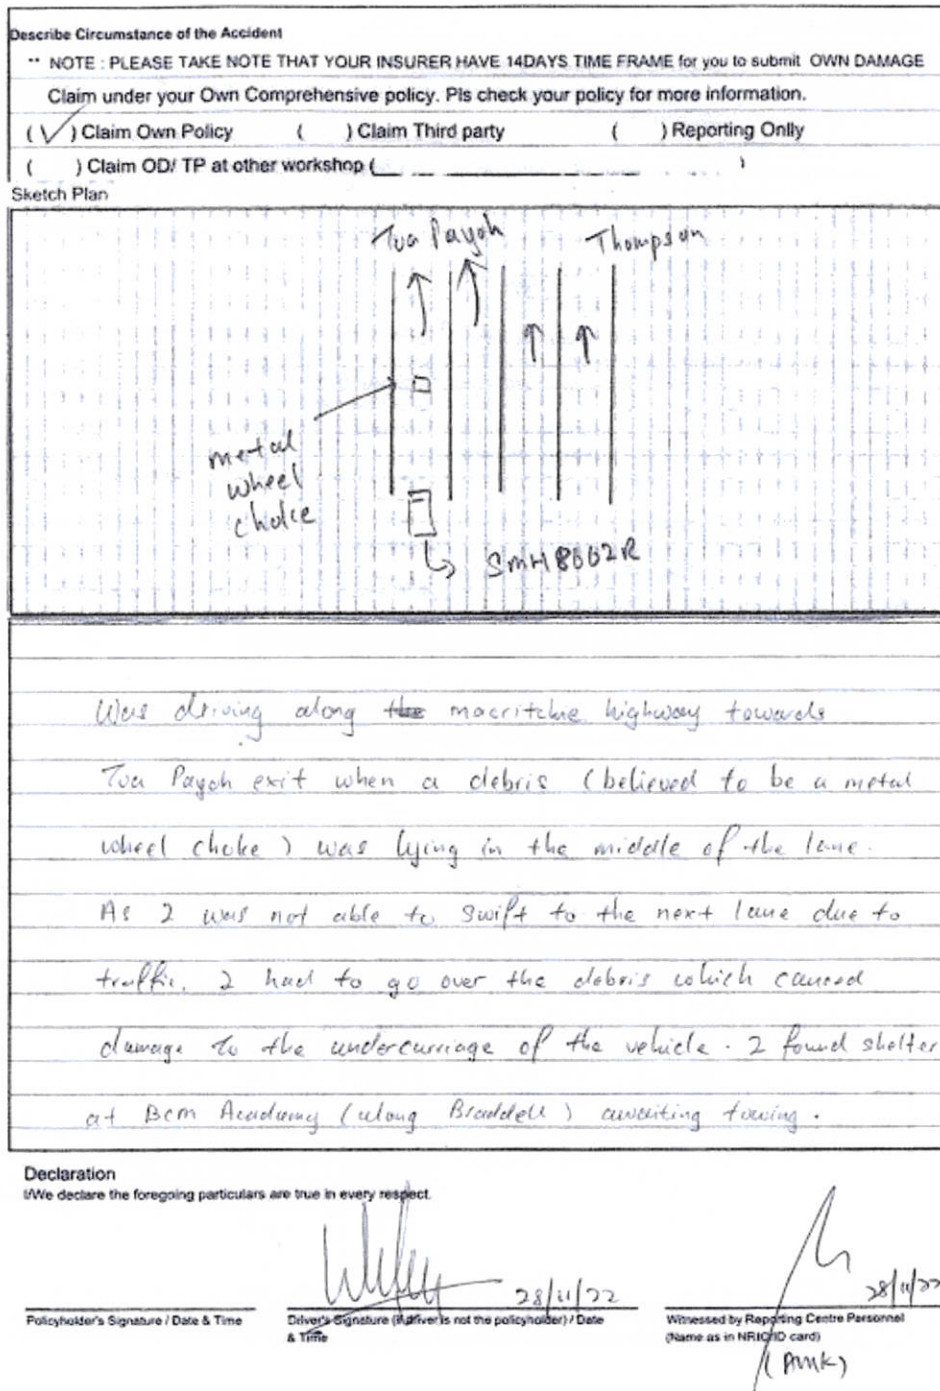 Describe Circumstance of the Accident
** NOTE : PLEASE TAKE NOTE THAT YOUR INSURER HAVE 14DAYS TIME FRAME for you to submit OWN DAMAGE
Claim under your Own Comprehensive policy. Pls check your policy for more information.
( √ ) Claim Own Policy ( ) Claim Third party ( ) Reporting Onlly
( ) Claim OD/ TP at other workshop ( )
Sketch Plan
Toa Payoh Thompson
metal
wheel
choke
SMH8002R
Was driving along the macritchie highway towards
Toa Payoh exit when a debris (believed to be a metal
wheel choke) was lying in the middle of the lane.
As I was not able to swift to the next lane due to
traffic, I had to go over the debris which caused
damage to the undercarriage of the vehicle. I found shelter
at Bcm Academy (along Braddell) awaiting towing.
Declaration
I/We declare the foregoing particulars are true in every respect.
28/11/22 28/11/22
Policyholder's Signature / Date & Time Driver's Signature (if driver is not the policyholder) / Date
& Time
Witnessed by Reporting Centre Personnel
(Name as in NRIC/ID card)
(AMK)